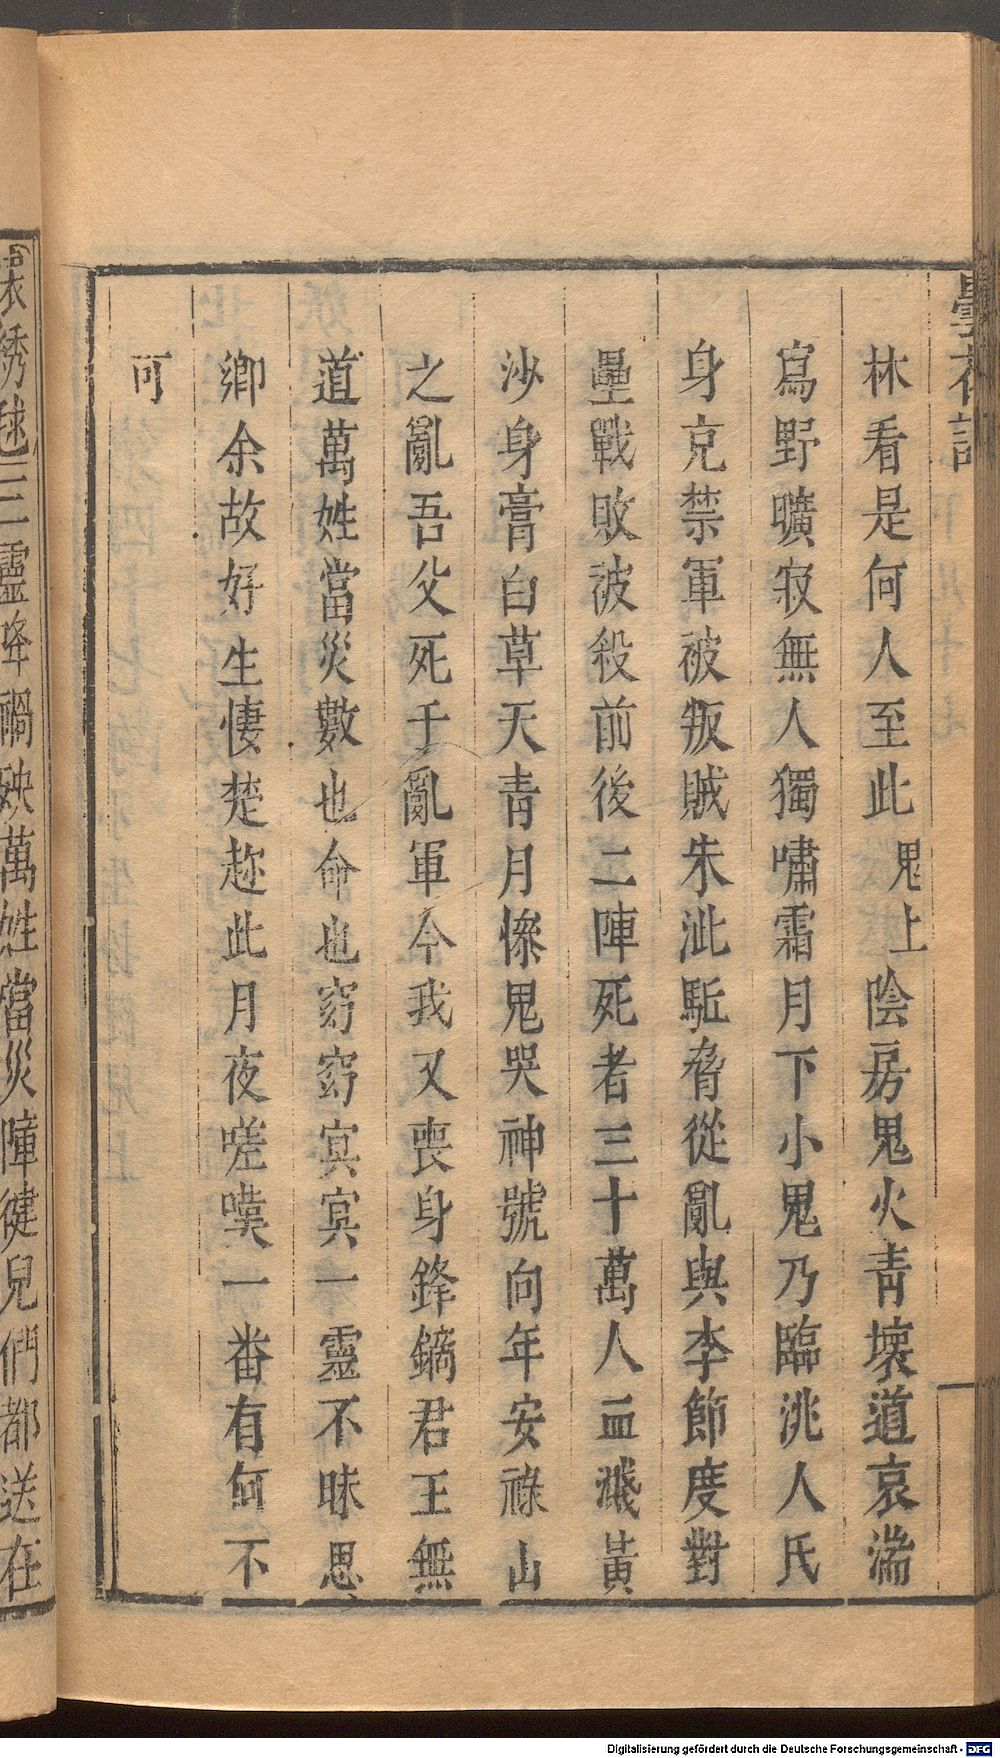 曇花記
林看是何人至此鬼上陰房鬼火青壞道哀湍
寫野曠寂無人獨嘯霜月下小鬼乃臨洮人氏
身充禁軍被叛賊朱泚駈脅從亂與李節度對
壘戰敗被殺前後二陣死者三十萬人血濺黃
沙身膏白草天青月慘鬼哭神號向年安祿山
之亂吾父死于亂軍今我又喪身鋒鏑君王無
道萬姓當災數也命也窈窈寞寞一靈不昧思
鄉余故好生悽楚趂此月夜嗟嘆一番有何不
可
裝綉毬三靈降禍殃萬姓當災障健兒們都送在
Digitalisierung gefördert durch die Deutsche Forschungsgemeinschaft - DFG